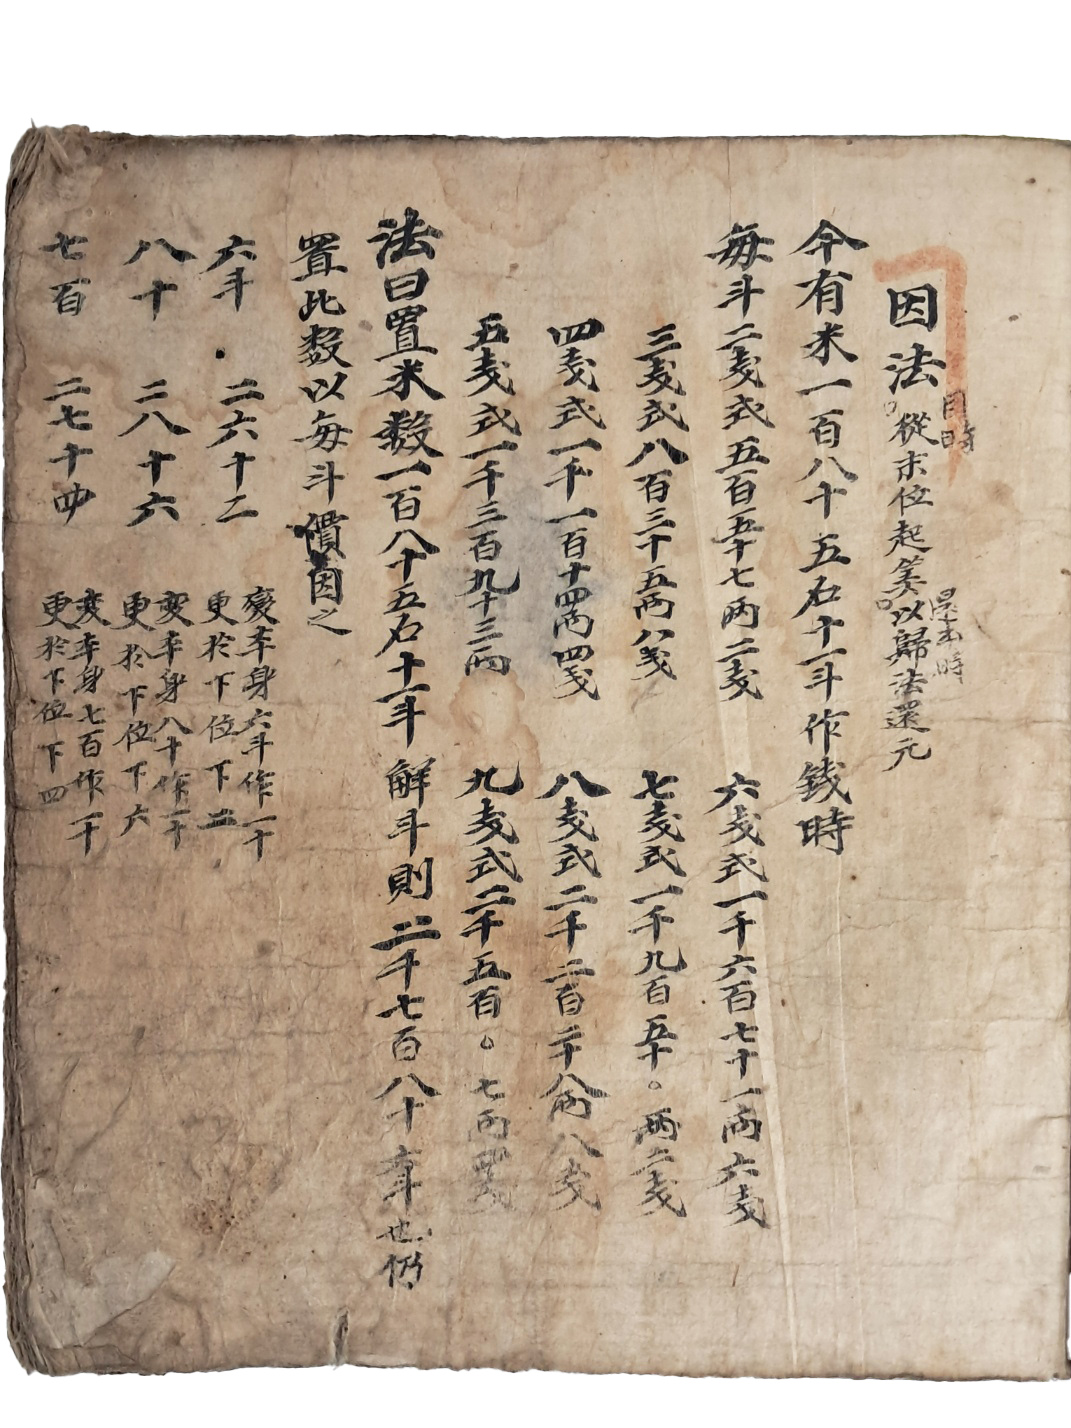 因法 從末位起筭以歸法還元
今有米一百八十五石十一斗作錢時
每斗二戔式五百五十七兩二戔 六戔式一千六百七十一兩六戔
三戔式八百三十五兩八戔 七戔式一千九百五十。兩二戔
四戔式一千一百十四兩四戔 八戔式二千二百二十八兩八戔
五戔式一千三百九十三兩 九戔式二千五百。七兩四戔
法曰置米數一百八十五石十一斗 解斗則二千七百八十六斗也仍
置此數以每斗價因之
六斗 二六十二 變本身六斗作一十
更於下位下二
八十 二八十六 變本身八十作一十
更於下位下六
七百 二七十四 變本身七百作一千
更於下位下四